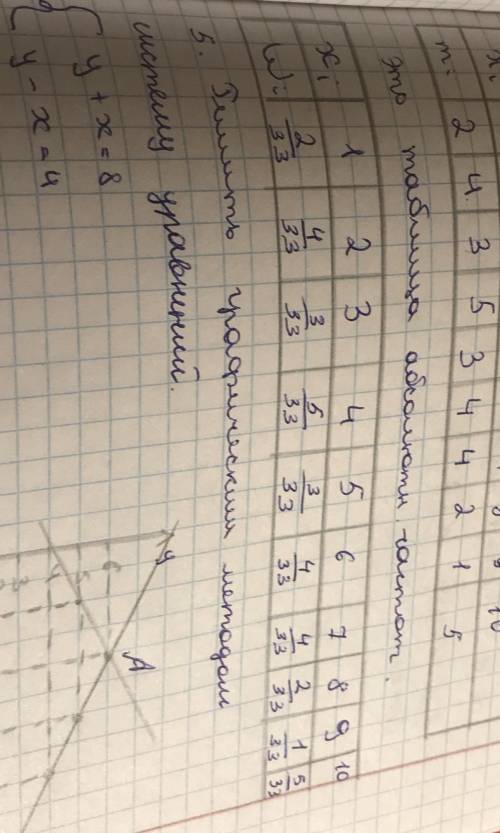 xᵢ 10
mᵢ 2 4 3 5 3 4 4 2 1 5
это таблица абсолютн частот.
xᵢ 1 2 3 4 5 6 7 8 9 10
Wᵢ 2/33 4/33 3/33 5/33 3/33 4/33 4/33 2/33 1/33 5/33
5. Решить графическим методом
систему уравнений.
{ y + x = 8
y - x = 4
y
A
6
5
4
3